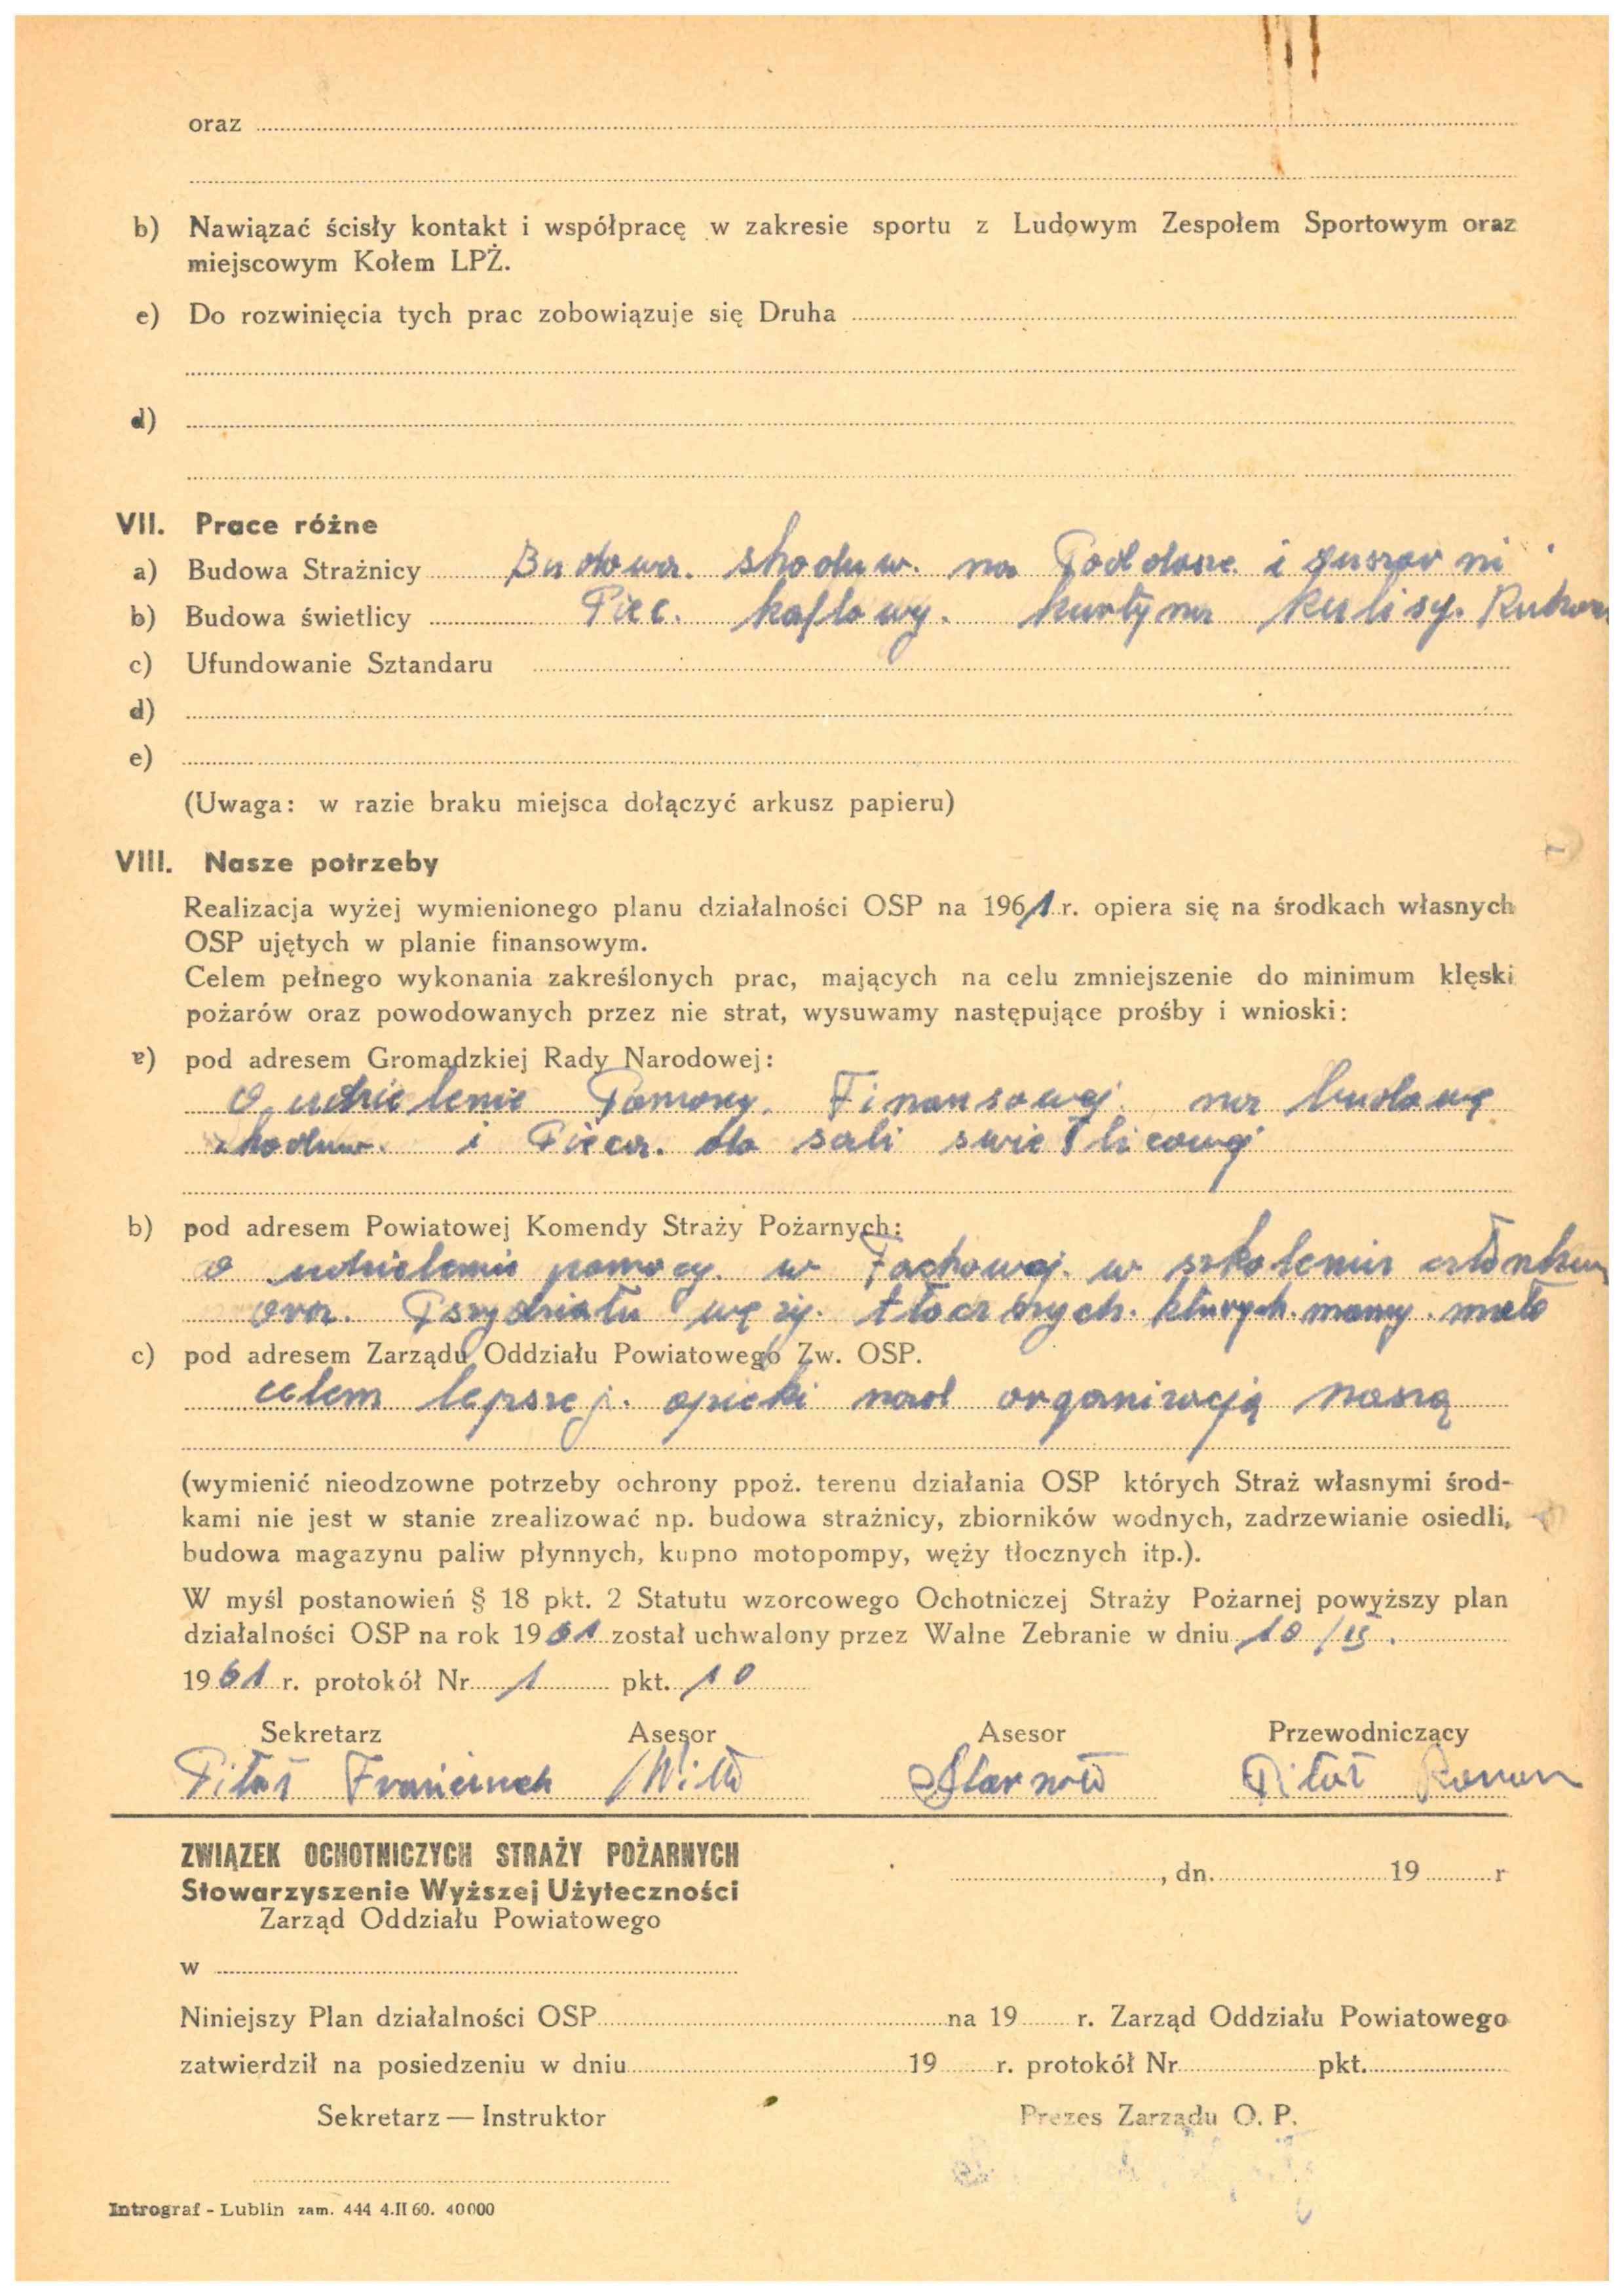 oraz
b) Nawiązać ścisły kontakt i współpracę w zakresie sportu z Ludowym Zespołem Sportowym oraz
miejscowym Kołem LPŻ.
e) Do rozwinięcia tych prac zobowiązuje się Druha
d)
VII. Prace różne
a) Budowa Strażnicy Budowa. shoduw. na Poddasze i
b) Budowa świetlicy Piec. kaflowy. kurtyna kulisy.
c) Ufundowanie Sztandaru
d)
e)
(Uwaga: w razie braku miejsca dołączyć arkusz papieru)
VIII. Nasze potrzeby
Realizacja wyżej wymienionego planu działalności OSP na 1961 r. opiera się na środkach własnych
OSP ujętych w planie finansowym.
Celem pełnego wykonania zakreślonych prac, mających na celu zmniejszenie do minimum klęski
pożarów oraz powodowanych przez nie strat, wysuwamy następujące prośby i wnioski:
a) pod adresem Gromadzkiej Rady Narodowej:
O udzielenie Pomocy. Finansowej. na budowę
shoduw. i Pieca. do sali swietlicowej
b) pod adresem Powiatowej Komendy Straży Pożarnych:
o udzielenie pomocy. w Fachowej. w szkolenia członkuw
oraz. Pszydziału węży. tłocznych. kturych. mamy. mało
c) pod adresem Zarządu Oddziału Powiatowego Zw. OSP.
celem lepszej. opieki nad organizacją naszą
(wymienić nieodzowne potrzeby ochrony ppoż. terenu działania OSP których Straż własnymi środ-
kami nie jest w stanie zrealizować np. budowa strażnicy, zbiorników wodnych, zadrzewianie osiedli,
budowa magazynu paliw płynnych, kupno motopompy, węży tłocznych itp.).
W myśl postanowień § 18 pkt. 2 Statutu wzorcowego Ochotniczej Straży Pożarnej powyższy plan
działalności OSP na rok 1961 został uchwalony przez Walne Zebranie w dniu 10
1961 r. protokół Nr 1 pkt. 10
Sekretarz Asesor Asesor Przewodniczący
Pitaś Franciszek Roman
ZWIĄZEK OCHOTNICZYCH STRAŻY POŻARNYCH
, dn. 19 r
Stowarzyszenie Wyższej Użyteczności
Zarząd Oddziału Powiatowego
w
Niniejszy Plan działalności OSP na 19 r. Zarząd Oddziału Powiatowego
zatwierdził na posiedzeniu w dniu 19 r. protokół Nr pkt.
Sekretarz — Instruktor Prezes Zarządu O. P.
Intrograf - Lublin zam. 444 4.II 60. 40000